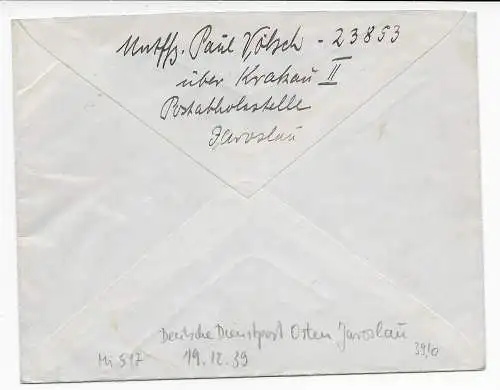 Uutffz. Paul Völsch - 23853
über Krakau II
Postabholestelle
Jaroslau
Deutsche Dienstpost Osten Jaroslau
Mi 517 19.12.39 39,10